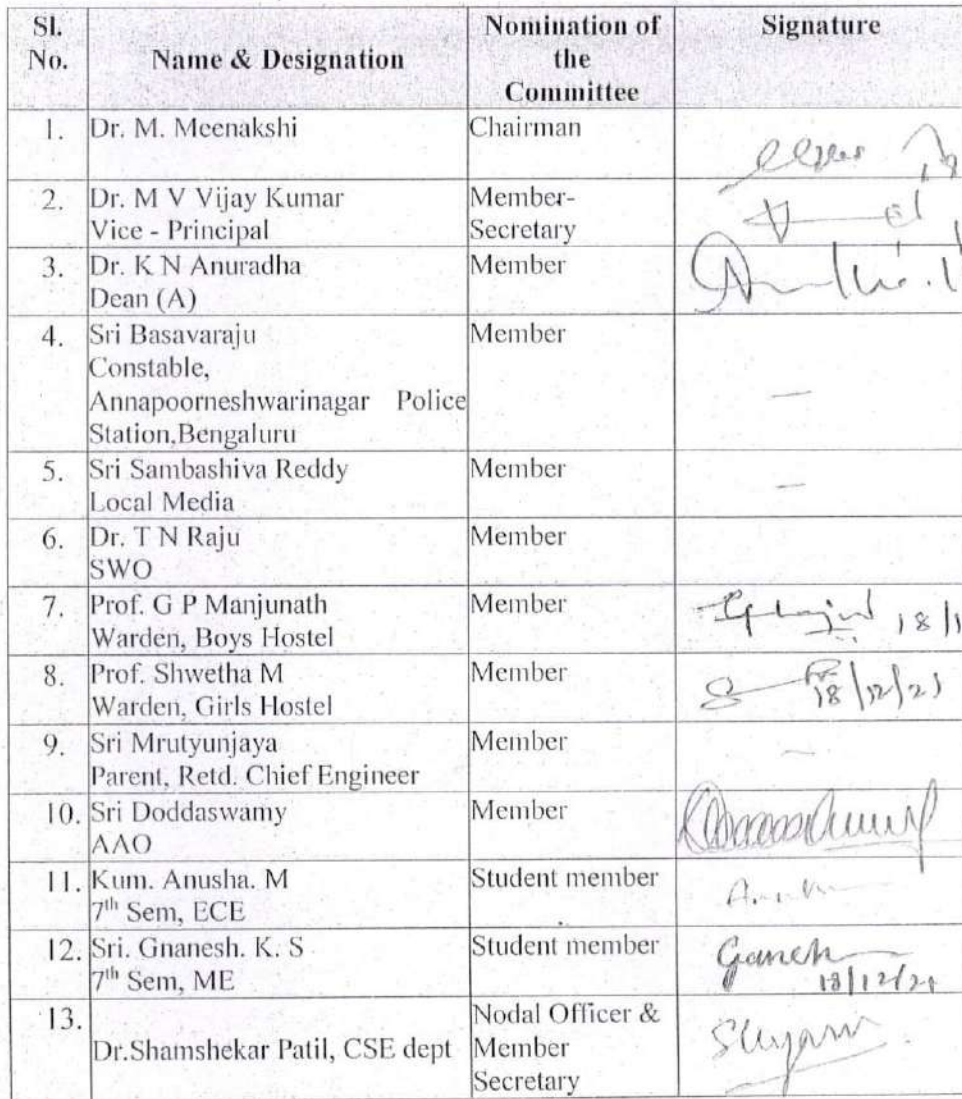 Sl. No.
Name & Designation
Nomination of the Committee
Signature
1.
Dr. M. Meenakshi
Chairman
2.
Dr. M V Vijay Kumar
Vice - Principal
Member-
Secretary
3.
Dr. K N Anuradha
Dean (A)
Member
4.
Sri Basavaraju
Constable,
Annapoorneshwarinagar Police
Station,Bengaluru
Member
—
5.
Sri Sambashiva Reddy
Local Media
Member
—
6.
Dr. T N Raju
SWO
Member
7.
Prof. G P Manjunath
Warden, Boys Hostel
Member
18/1
8.
Prof. Shwetha M
Warden, Girls Hostel
Member
18/12/21
9.
Sri Mrutyunjaya
Parent, Retd. Chief Engineer
Member
—
10.
Sri Doddaswamy
AAO
Member
11.
Kum. Anusha. M
7th Sem, ECE
Student member
12.
Sri. Gnanesh. K. S
7th Sem, ME
Student member
18/12/21
13.
Dr.Shamshekar Patil, CSE dept
Nodal Officer &
Member
Secretary